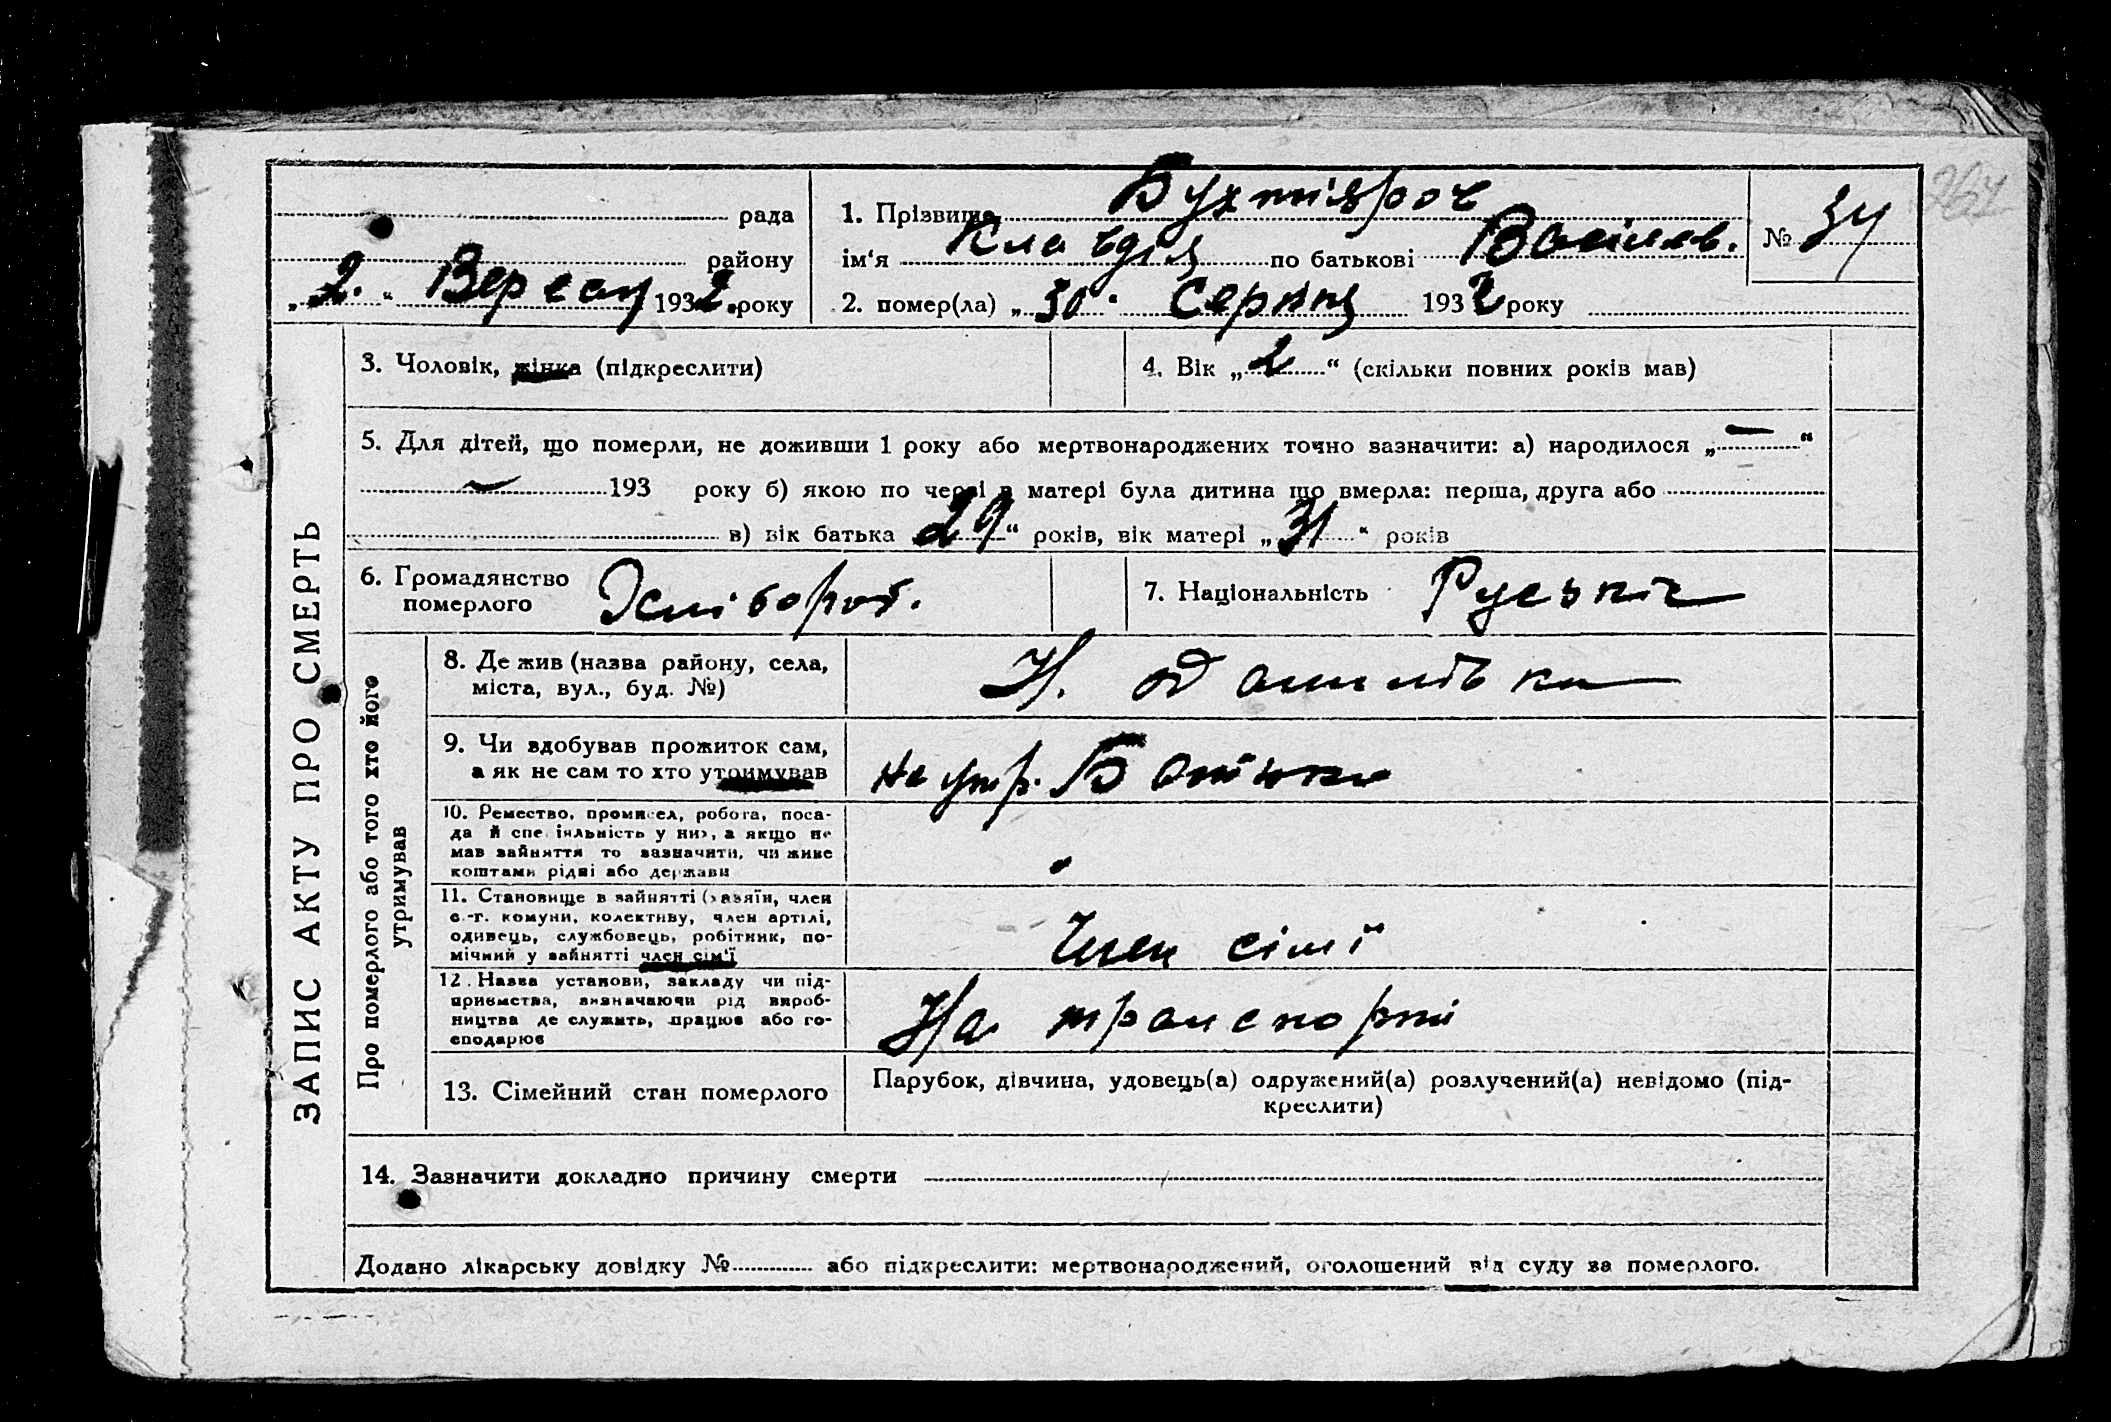 ЗАПИС АКТУ ПРО СМЕРТЬ
рада
району
„2.“ Вересня 1932. року
1. Прізвище Бухтіяроч
ім‘я Клавдія по батькові Васілєв.
2. помер(ла) „30“ Серпня 1932 року
№ 34
3. Чоловік, жінка (підкреслити)
4. Вік „2“ (скільки повних років мав)
5. Для дітей, що померли, не доживши 1 року або мертвонароджених точно зазначити: а) народилося „—“
193 року б) якою по черзі в матері була дитина що вмерла: перша, друга або
в) вік батька „29“ років, вік матері „31“ років
6. Громадянство
померлого
7. Національність
Про померлого або того хто його
утримував
8. Де жив (назва району, села,
міста, вул., буд. №)
9. Чи здобував прожиток сам,
а як не сам то хто утримував
на утр. Батька
10. Ремество, промисел, робота, поса-
да й спеціяльність у них, а якщо не
мав зайняття то зазначити, чи живе
коштами рідні або держави
11. Становище в зайнятті (хазяїн, член
с.-г. комуни, колективу, член артілі,
одинець, службовець, робітник, по-
мічний у зайнятті член сім‘ї
Член сімї
12. Назва установи, закладу чи під-
приємства, визначаючи рід вироб-
ництва де служить, працює або го-
сподарює
На транспорті
13. Сімейний стан померлого
Парубок, дівчина, удовець(а) одружений(а) розлучений(а) невідомо (під-
креслити)
14. Зазначити докладно причину смерти
Додано лікарську довідку № або підкреслити: мертвонароджений, оголошений від суду за померлого.